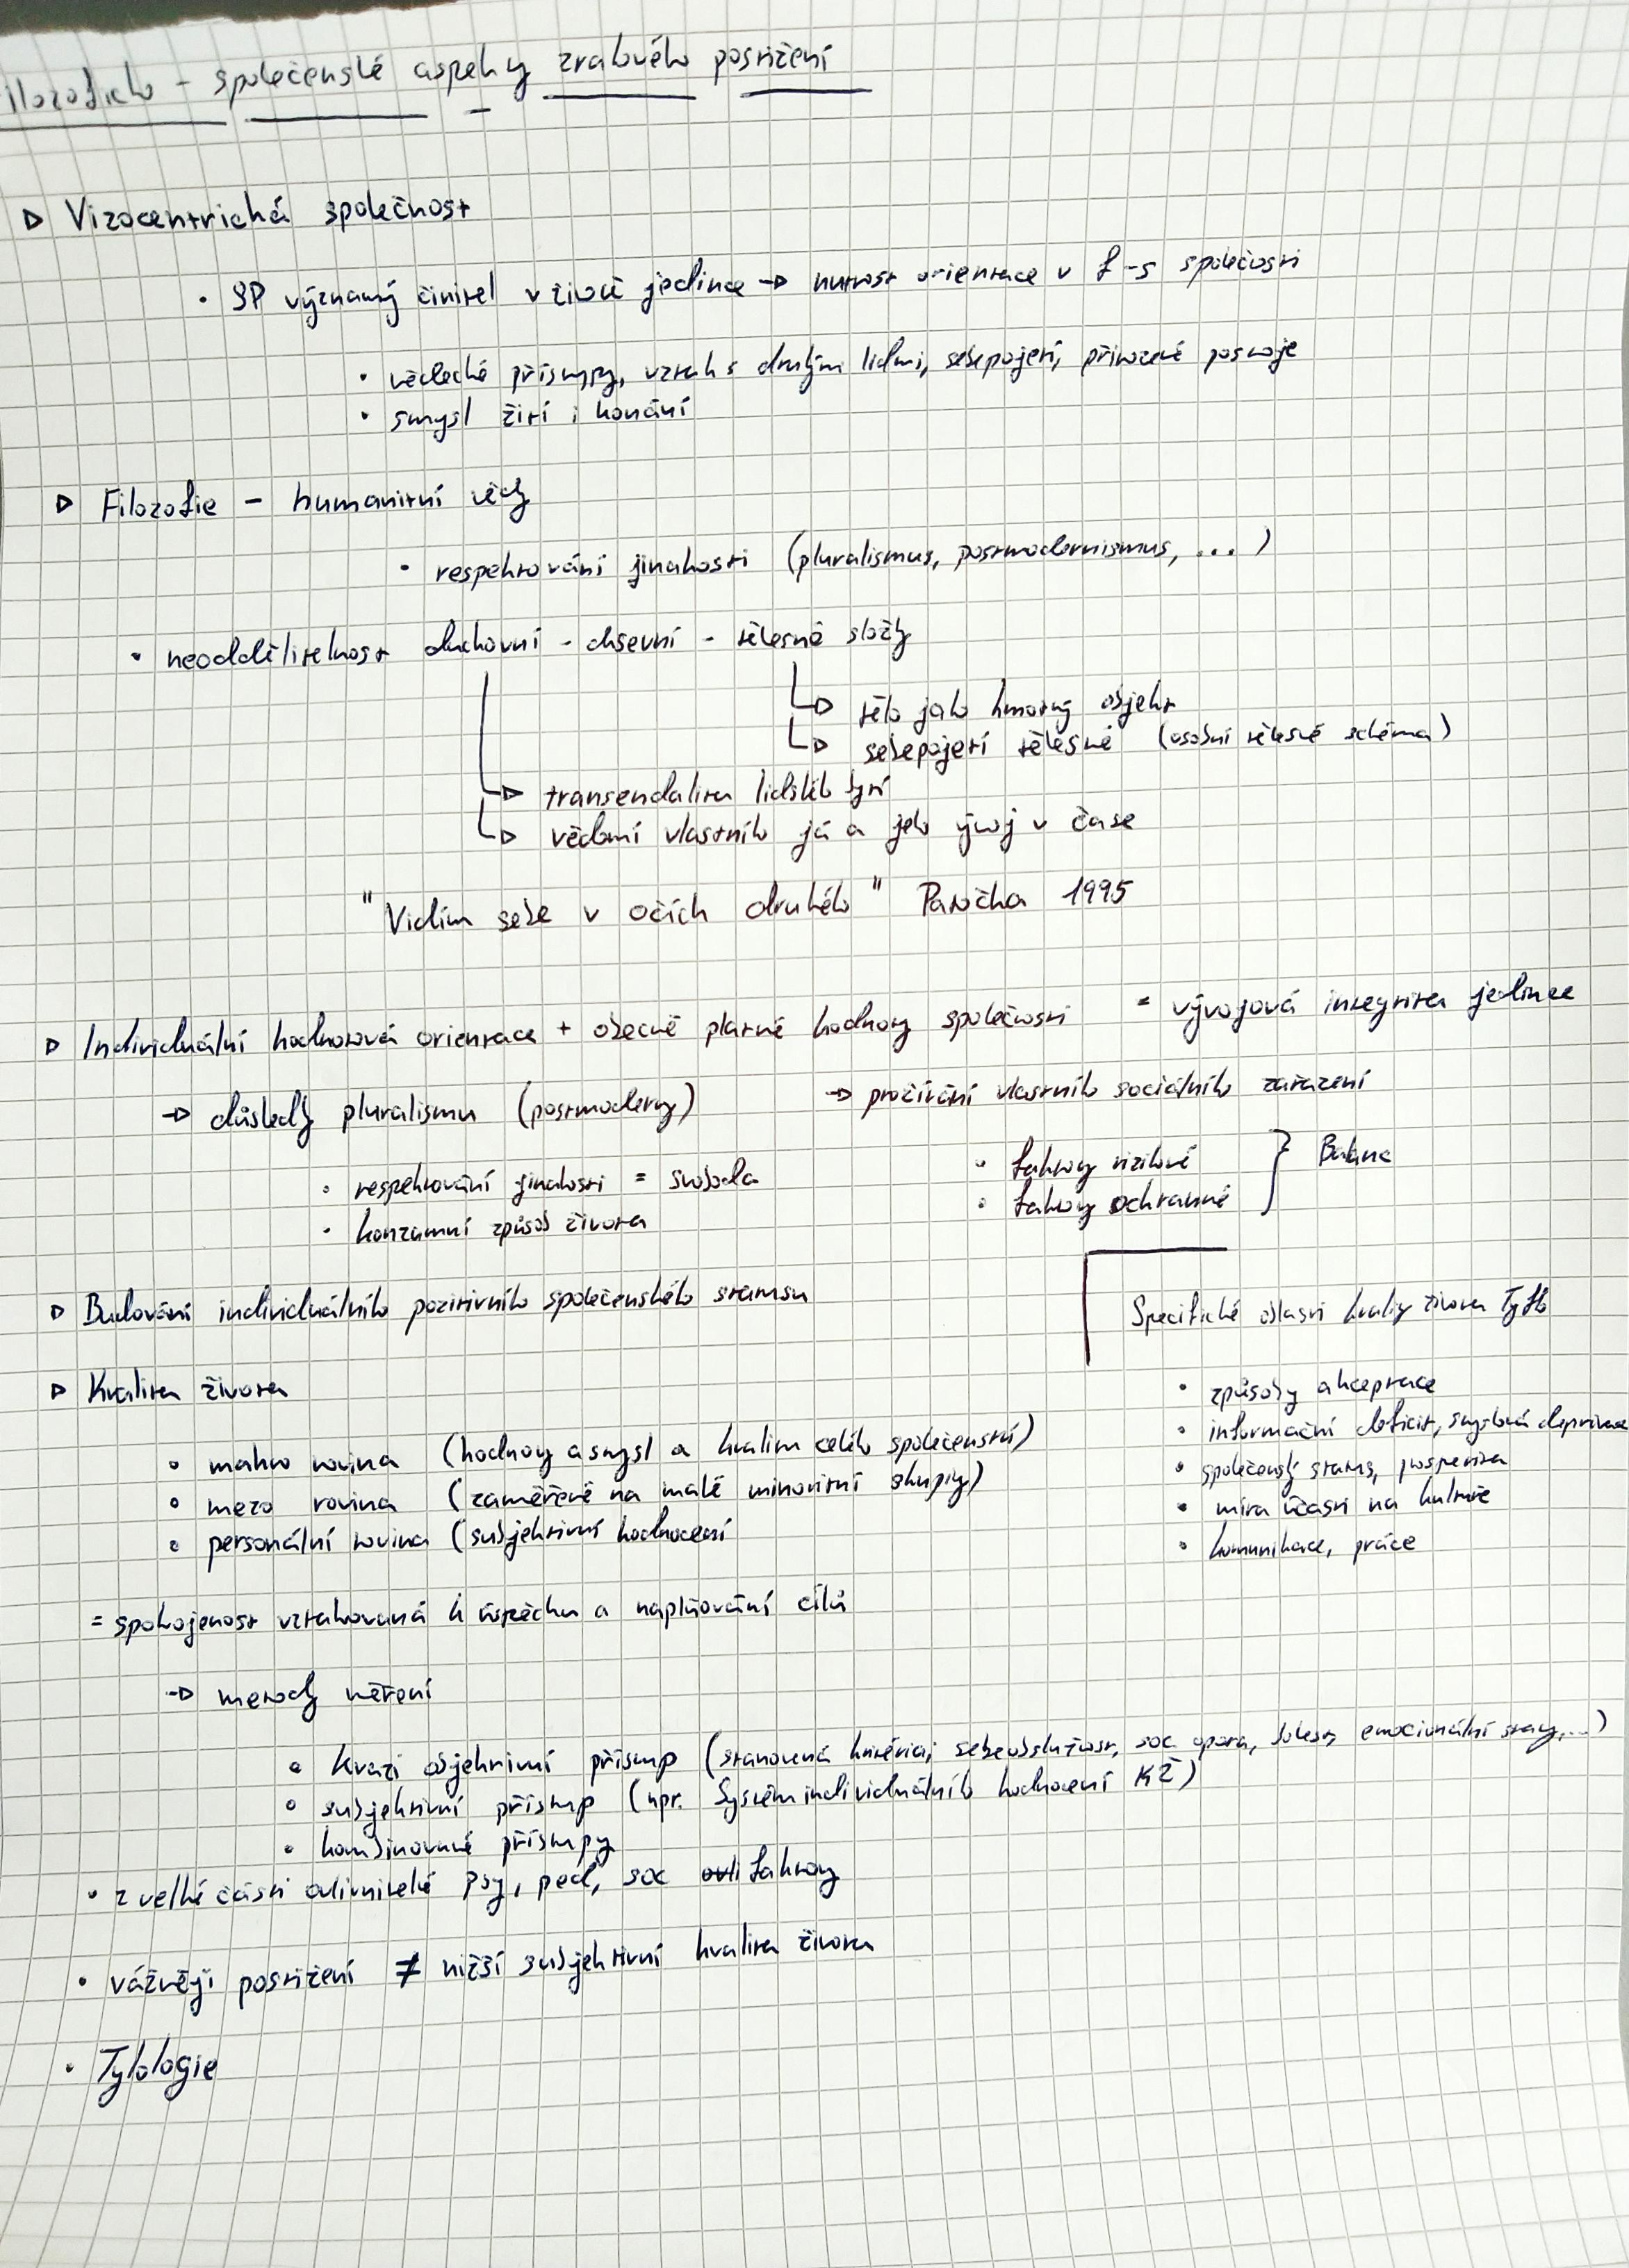 ilozoficko - společenské aspekty zrakového postižení
▷ Vizocentrická společnost
• SP významný činitel v životě jedince → nutnost orientace v f-s společnosti
• vědecké přístupy, vztah s druhými lidmi, sebepojetí, přirozené postoje
• smysl žití i konání
▷ Filozofie - humanitní vědy
• respektování jinakosti (pluralismus, postmodernismus, ...)
• neoddělitelnost duchovní - dševní - tělesné složky
→ tělo jako hmotný objekt
→ sebepojetí tělesné (osobní tělesné schéma)
→ transendalita lidského bytí
→ vědomí vlastního já a jeho vývoj v čase
"Vidím sebe v očích druhého" Patočka 1995
▷ Individuální hodnotová orientace + obecně platné hodnoty společnosti = vývojová integrita jedince
→ důsledky pluralismu (postmoderny)
• respektování jinakosti = svoboda
• konzumní způsob života
→ prožívání vlastního sociálního zařazení
• faktory rizikové
• faktory ochranné } Balanc
▷ Budování individuálního pozitivního společenského statusu
▷ Kvalita života
• makro rovina (hodnoty a smysl a kvalita celého společenství)
• mezo rovina (zaměřené na malé minoritní skupiny)
• personální rovina (subjektivní hodnocení
Specifické oblasti kvality života Tyflo
• způsoby akceptace
• informační deficit, smyslová deprivace
• společenský status, prosperita
• míra účasti na kultuře
• komunikace, práce
= spokojenost vztahovaná k úspěchu a naplňování cílů
→ metody měření
• Kvazi objektivní přístup (stanovená kritéria; sebeobslužnost, soc opora, bolest, emocionální stavy,...)
• subjektivní přístup (npr. Systém individuálního hodnocení KŽ)
• kombinované přístupy
• z velké části ovlivnitelné psy, ped, soc faktory
• vážněji postižení ≠ nižší subjektivní kvalita života
• Tyfologie